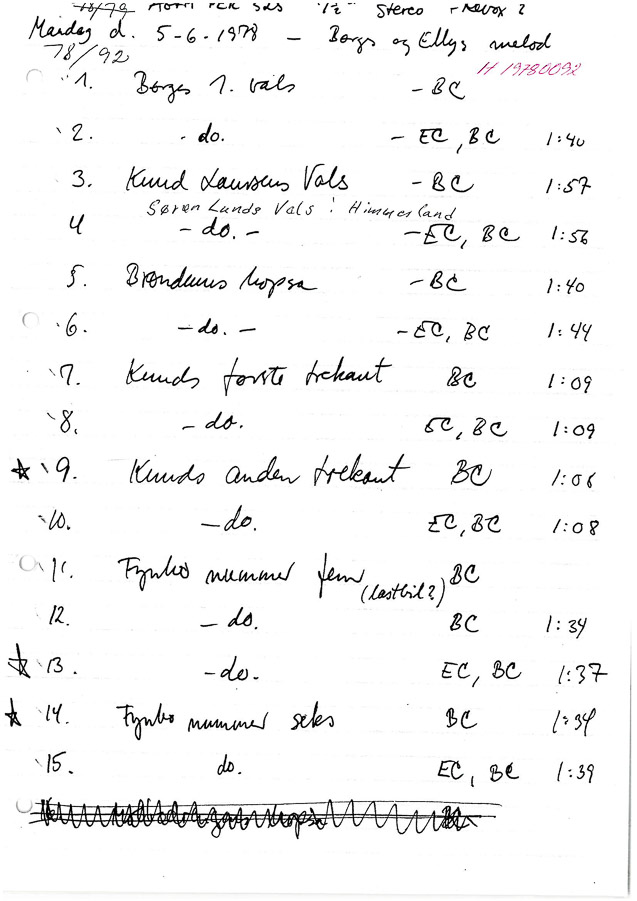 18/79 7½ Stereo Revox 2
Mandag d. 5-6-1978 – Børges og Ellys melod
78/92
H 19780092
1. Børges 1. vals – BC
2. - do. – EC, BC 1:40
3. Knud Laursens Vals – BC 1:57
Søren Lunds Vals i Himmerland
4 – do. – – EC, BC 1:56
5. Brøndums hopsa – BC 1:40
6. – do. – – EC, BC 1:44
7. Knuds første trekant BC 1:09
8. – do. EC, BC 1:09
9. Knuds anden trekant BC 1:06
10. – do. EC, BC 1:08
11. Fynbo nummer fem (lastbil?) BC
12. – do. BC 1:34
13. – do. EC, BC 1:37
14. Fynbo nummer seks BC 1:34
15. do. EC, BC 1:39